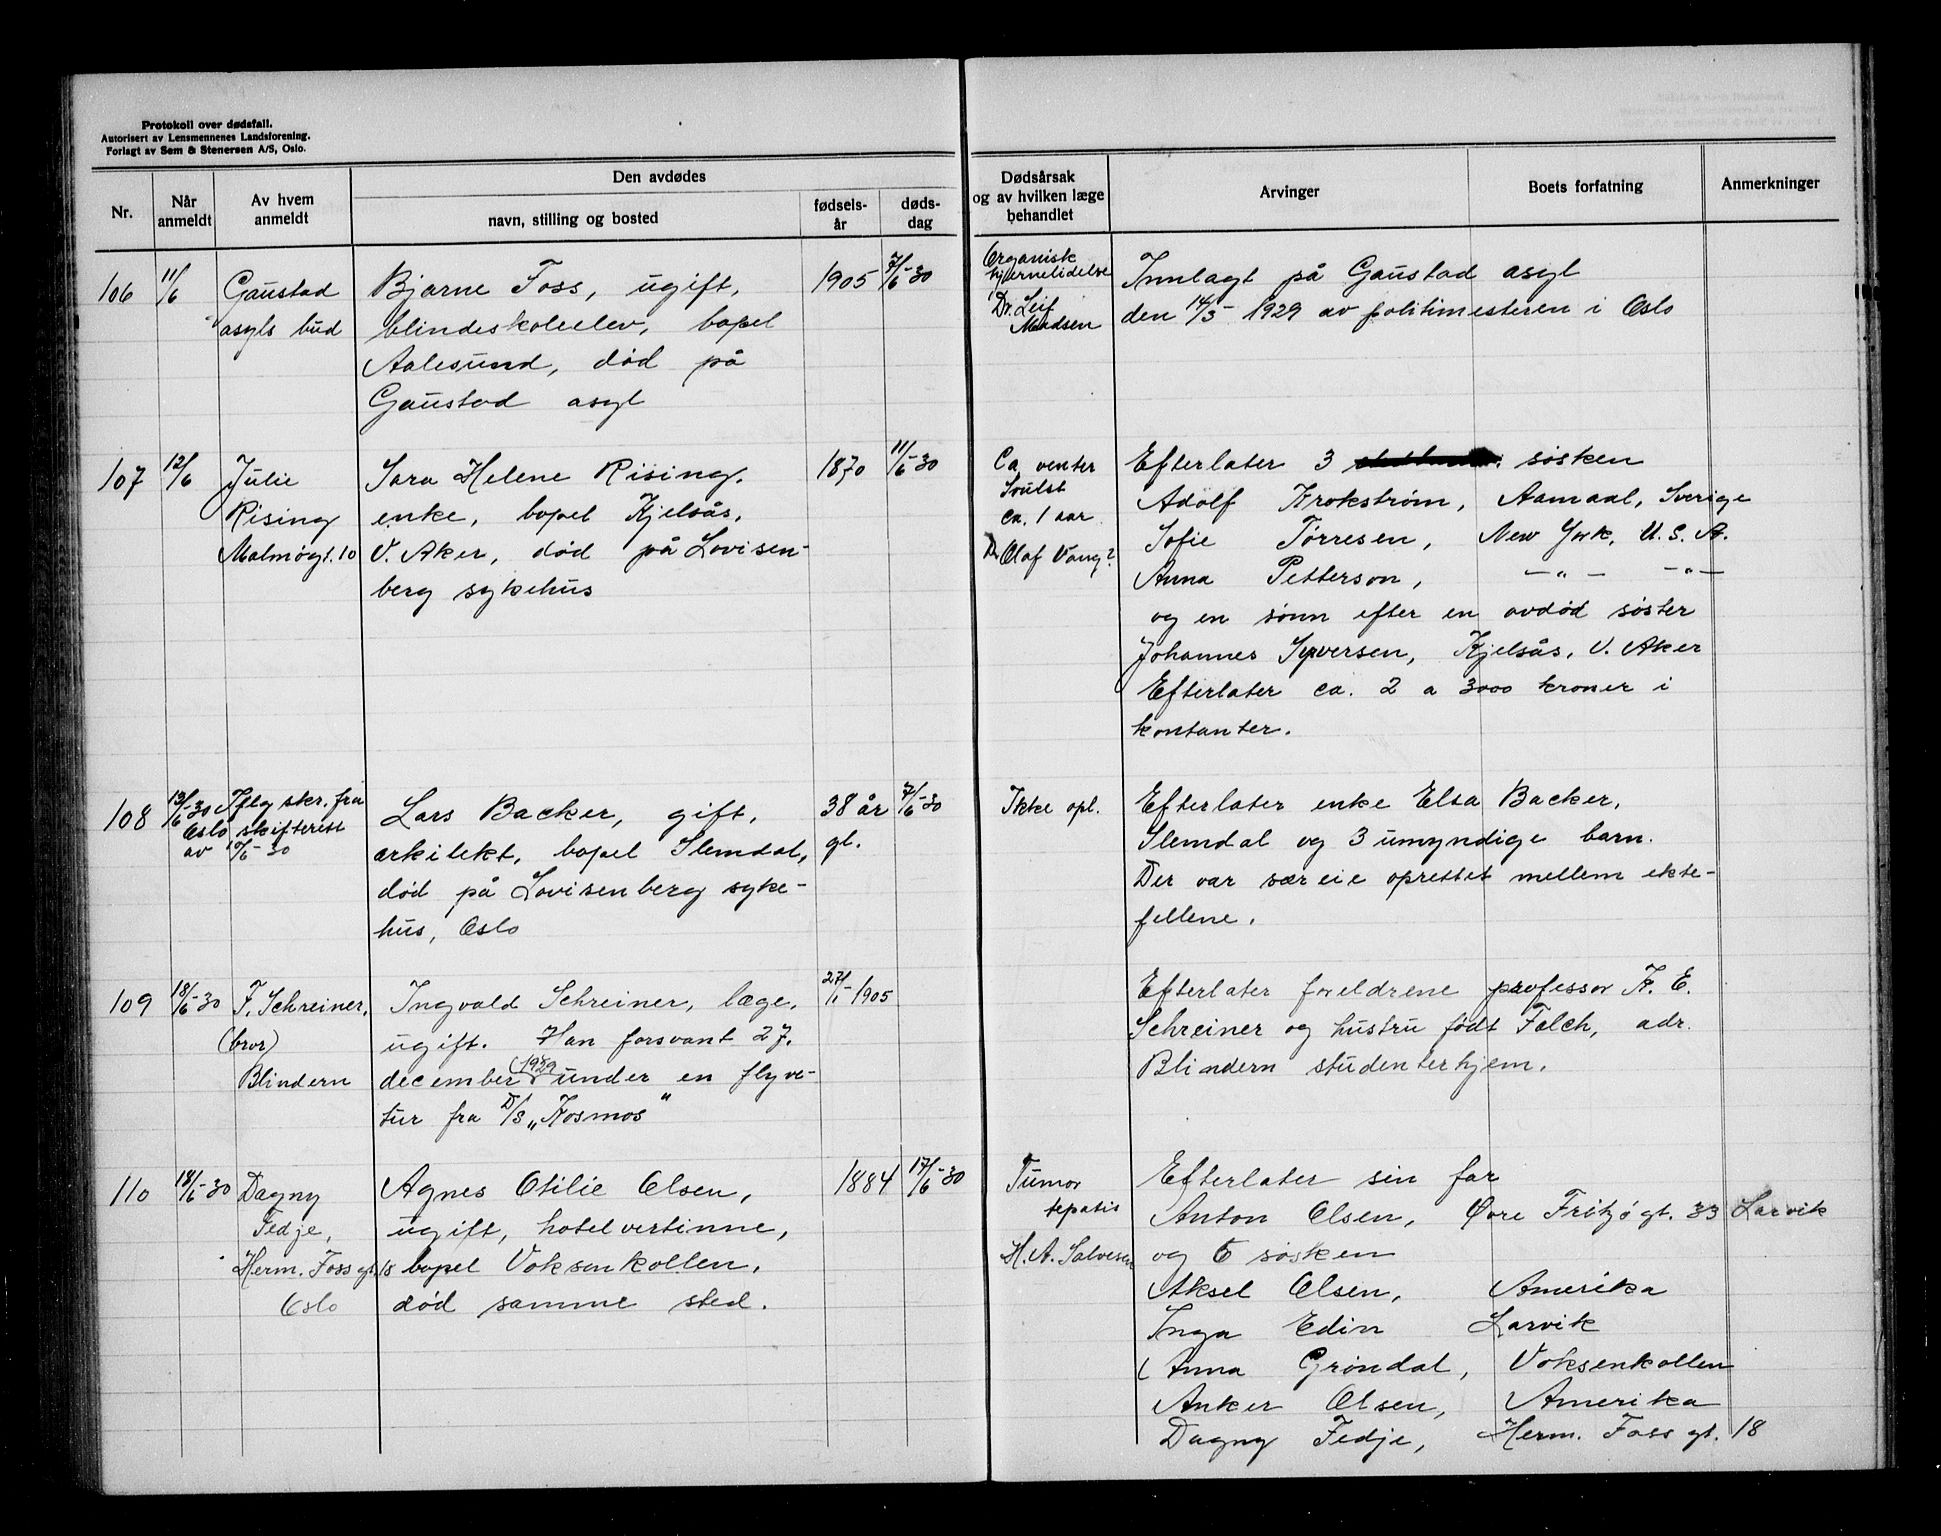 Protokoll over dødsfall.
Autorisert av Lensmennenes Landsforening.
Forlagt av Sem & Stenersen A/S, Oslo.
Nr.
Når
anmeldt
Av hvem
anmeldt
Den avdødes
navn, stilling og bosted
fødsels-
år
døds-
dag
Dødsårsak
og av hvilken læge
behandlet
Arvinger
Boets forfatning
Anmerkninger
106
11/6
Gaustad
asyls bud
Bjarne Foss, ugift,
blindeskoleelev, bopel
Aalesund, død på
Gaustad asyl
1905
7/6-30
Organisk
hjernelidelse
Dr. Leif
Madsen
Innlagt på Gaustad asyl
den 14/5 1929 av politimesteren i Oslo
107
12/6
Julie
Rising
Malmøgt. 10
Sara Helene Rising,
enke, bopel Kjelsås,
V. Aker, død på Lovisen-
berg sykehus
1870
11/6-30
Ca venter
Svulst
ca. 1 aar
Dr Olaf Vang?
Efterlater 3 søsken
Adolf Krokstrøm, Aamaal, Sverige
Sofie Tørresen, New York, U.S.A.
Anna Petterson, —„— —„—
og en sønn efter en avdød søster
Johannes Syversen, Kjelsås, V. Aker
Efterlater ca. 2 a 3000 kroner i
kontanter.
108
13/6-30
Iflg skr. fra
Oslo skifterett
av 10/6-30
Lars Backer, gift,
arkitekt, bopel Slemdal,
død på Lovisenberg syke-
hus, Oslo
38 år
gl.
7/6-30
Ikke opl.
Efterlater enke Elsa Backer,
Slemdal og 3 umyndige barn.
Der var særeie oprettet mellem ekte-
fellene.
109
18/6-30
F. Schreiner,
(bror)
Blindern
Ingvald Schreiner, læge,
ugift. Han forsvant 27.
december 1929 under en flyve-
tur fra D/S „Kosmos"
27/1-1905
Efterlater foreldrene professor K. E.
Schreiner og hustru født Falch, adr.
Blindern studenterhjem.
110
18/6-30
Dagny
Fedje,
Herm. Foss gt. 18
Oslo
Agnes Otilie Olsen,
ugift, hotelvertinne,
bopel Voksenkollen,
død samme sted.
1884
17/6-30
Tumor
hepatis
H. A. Salvesen
Efterlater sin far
Anton Olsen, Øvre Fritzøgt. 33 Larvik
og 6 søsken
Aksel Olsen, Amerika
Inga Edin Larvik
Anna Grøndal, Voksenkollen
Anker Olsen, Amerika
Dagny Fedje, Herm. Foss gt. 18